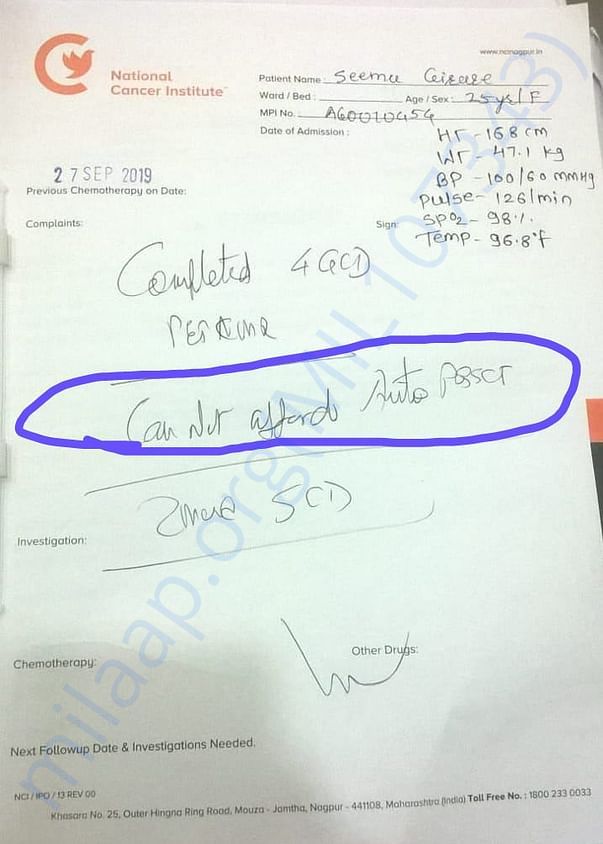 www.ncinagpur.in
National
Cancer Institute
Patient Name : Seema
Ward / Bed : Age / Sex : 25 ys / F
MPI No. : A60010454
Date of Admission :
HT - 168 cm
WT - 47.1 kg
BP - 100/60 mmHg
Pulse - 126/min
SPO2 - 98%.
Temp - 96.8°f
27 SEP 2019
Previous Chemotherapy on Date:
Complaints:
Sign:
Completed 4 GCD
Can Not afford Auto PBSCT
Investigation:
Chemotherapy:
Other Drugs:
Next Followup Date & Investigations Needed.
NCI / IPD / 13 REV 00
Khasara No. 25, Outer Hingna Ring Road, Mouza - Jamtha, Nagpur - 441108, Maharashtra (India) Toll Free No. : 1800 233 0033
milaap.org(MIL107343)